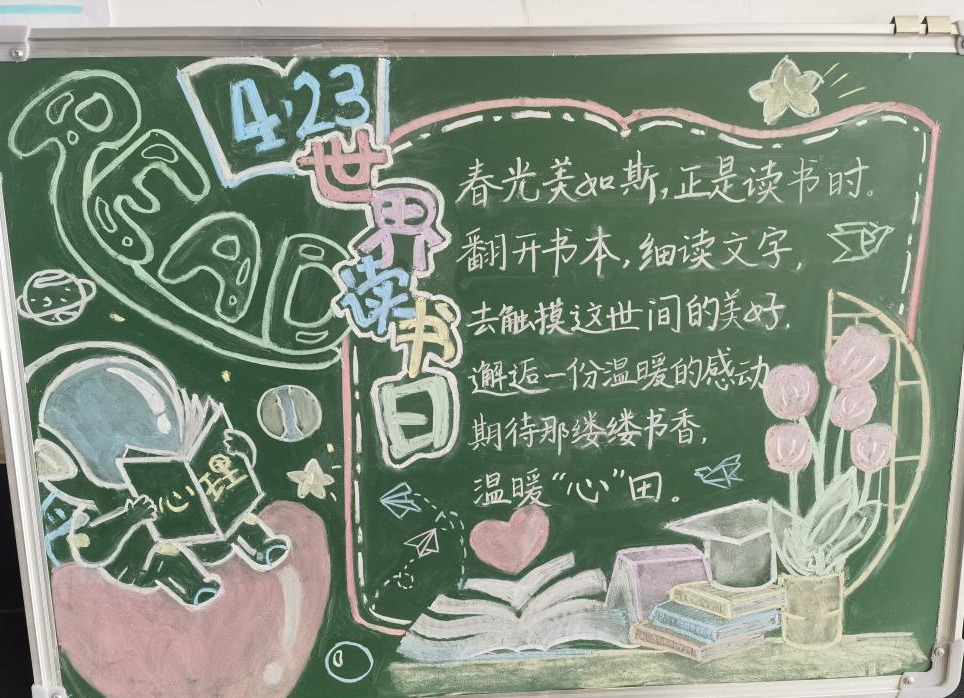 READ
4.23
世界读书日
春光美如斯,正是读书时。
翻开书本,细读文字,
去触摸这世间的美好,
邂逅一份温暖的感动
期待那缕缕书香,
温暖“心”田。
心理